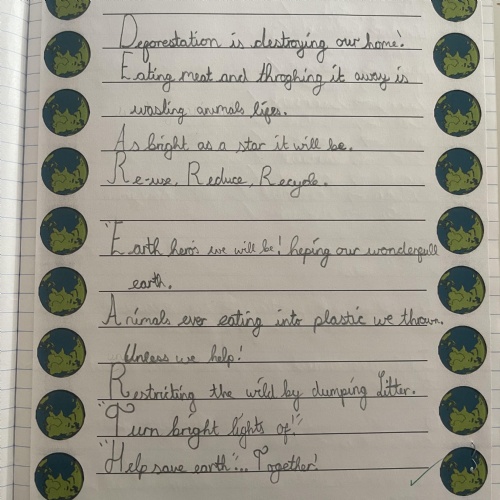 Deforestation is destroying our home!
Eating meat and throghing it away is
wasting animals lifes.
As bright as a star it will be.
Re-use, Reduce, Recycle.
"Earth hero's we will be! heping our wonderfull
earth.
Animals ever eating into plastic we thrown.
Unless we help!
Restricting the wild by dumping Litter.
"Turn bright lights of!"
"Help save earth"... Together!